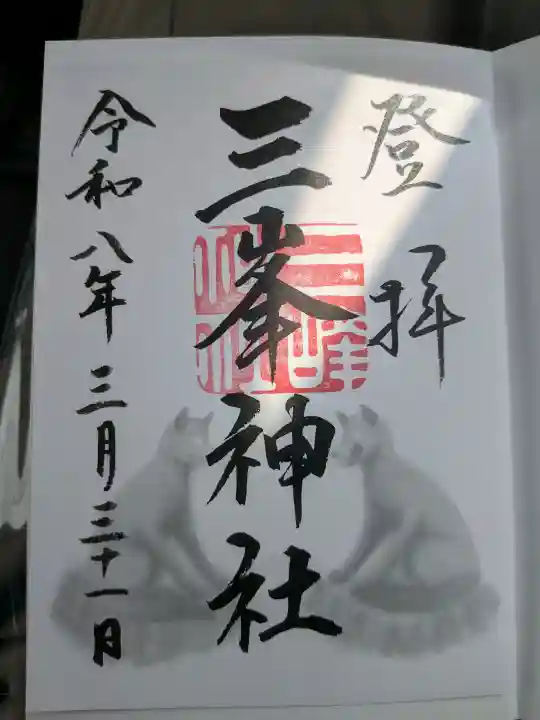 登拝
三峯神社
令和八年三月三十一日